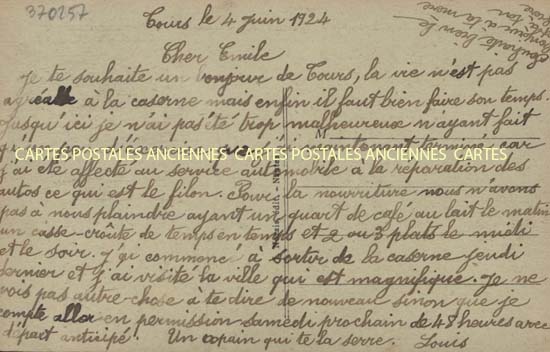 370257
Tours le 4 juin 1924
Souhaite bien le
bonjour à ta mère
et à ton
Cher Emile
Je te souhaite un bonjour de Tours, la vie n'est pas
agréable à la caserne mais enfin il faut bien faire son temps
Jusqu'ici je n'ai pas été trop malheureux n'ayant fait
maintenant terminé car
CARTES POSTALES ANCIENNES CARTES POSTALES ANCIENNES CARTES
j'ai été affecté au service automobile à la réparation des
autos ce qui est le filon. Pour la nourriture nous n'avons
pas à nous plaindre ayant un quart de café au lait le matin
un casse-croûte de temps en temps et 2 ou 3 plats le midi
et le soir. J'ai commencé à sortir de la caserne jeudi
dernier et j'ai visité la ville qui est magnifique. Je ne
vois pas autre chose à te dire de nouveau sinon que je
compte aller en permission samedi prochain de 48 heures avec
départ anticipé. Un copain qui te la serre. Louis